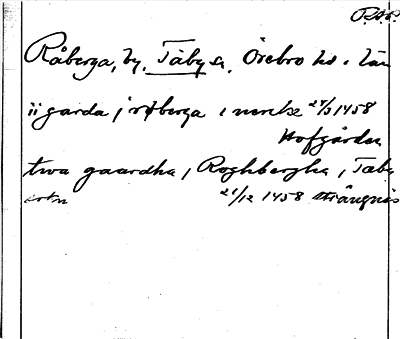 R.A.P.
Råberga, by, Täby sn. Örebro hd o. län
ii garda j røberga i nerike 27/3 1458
Hofgården
twa gaardha, Roghbergha, Tæby
sokn 21/12 1458 Strängnäs